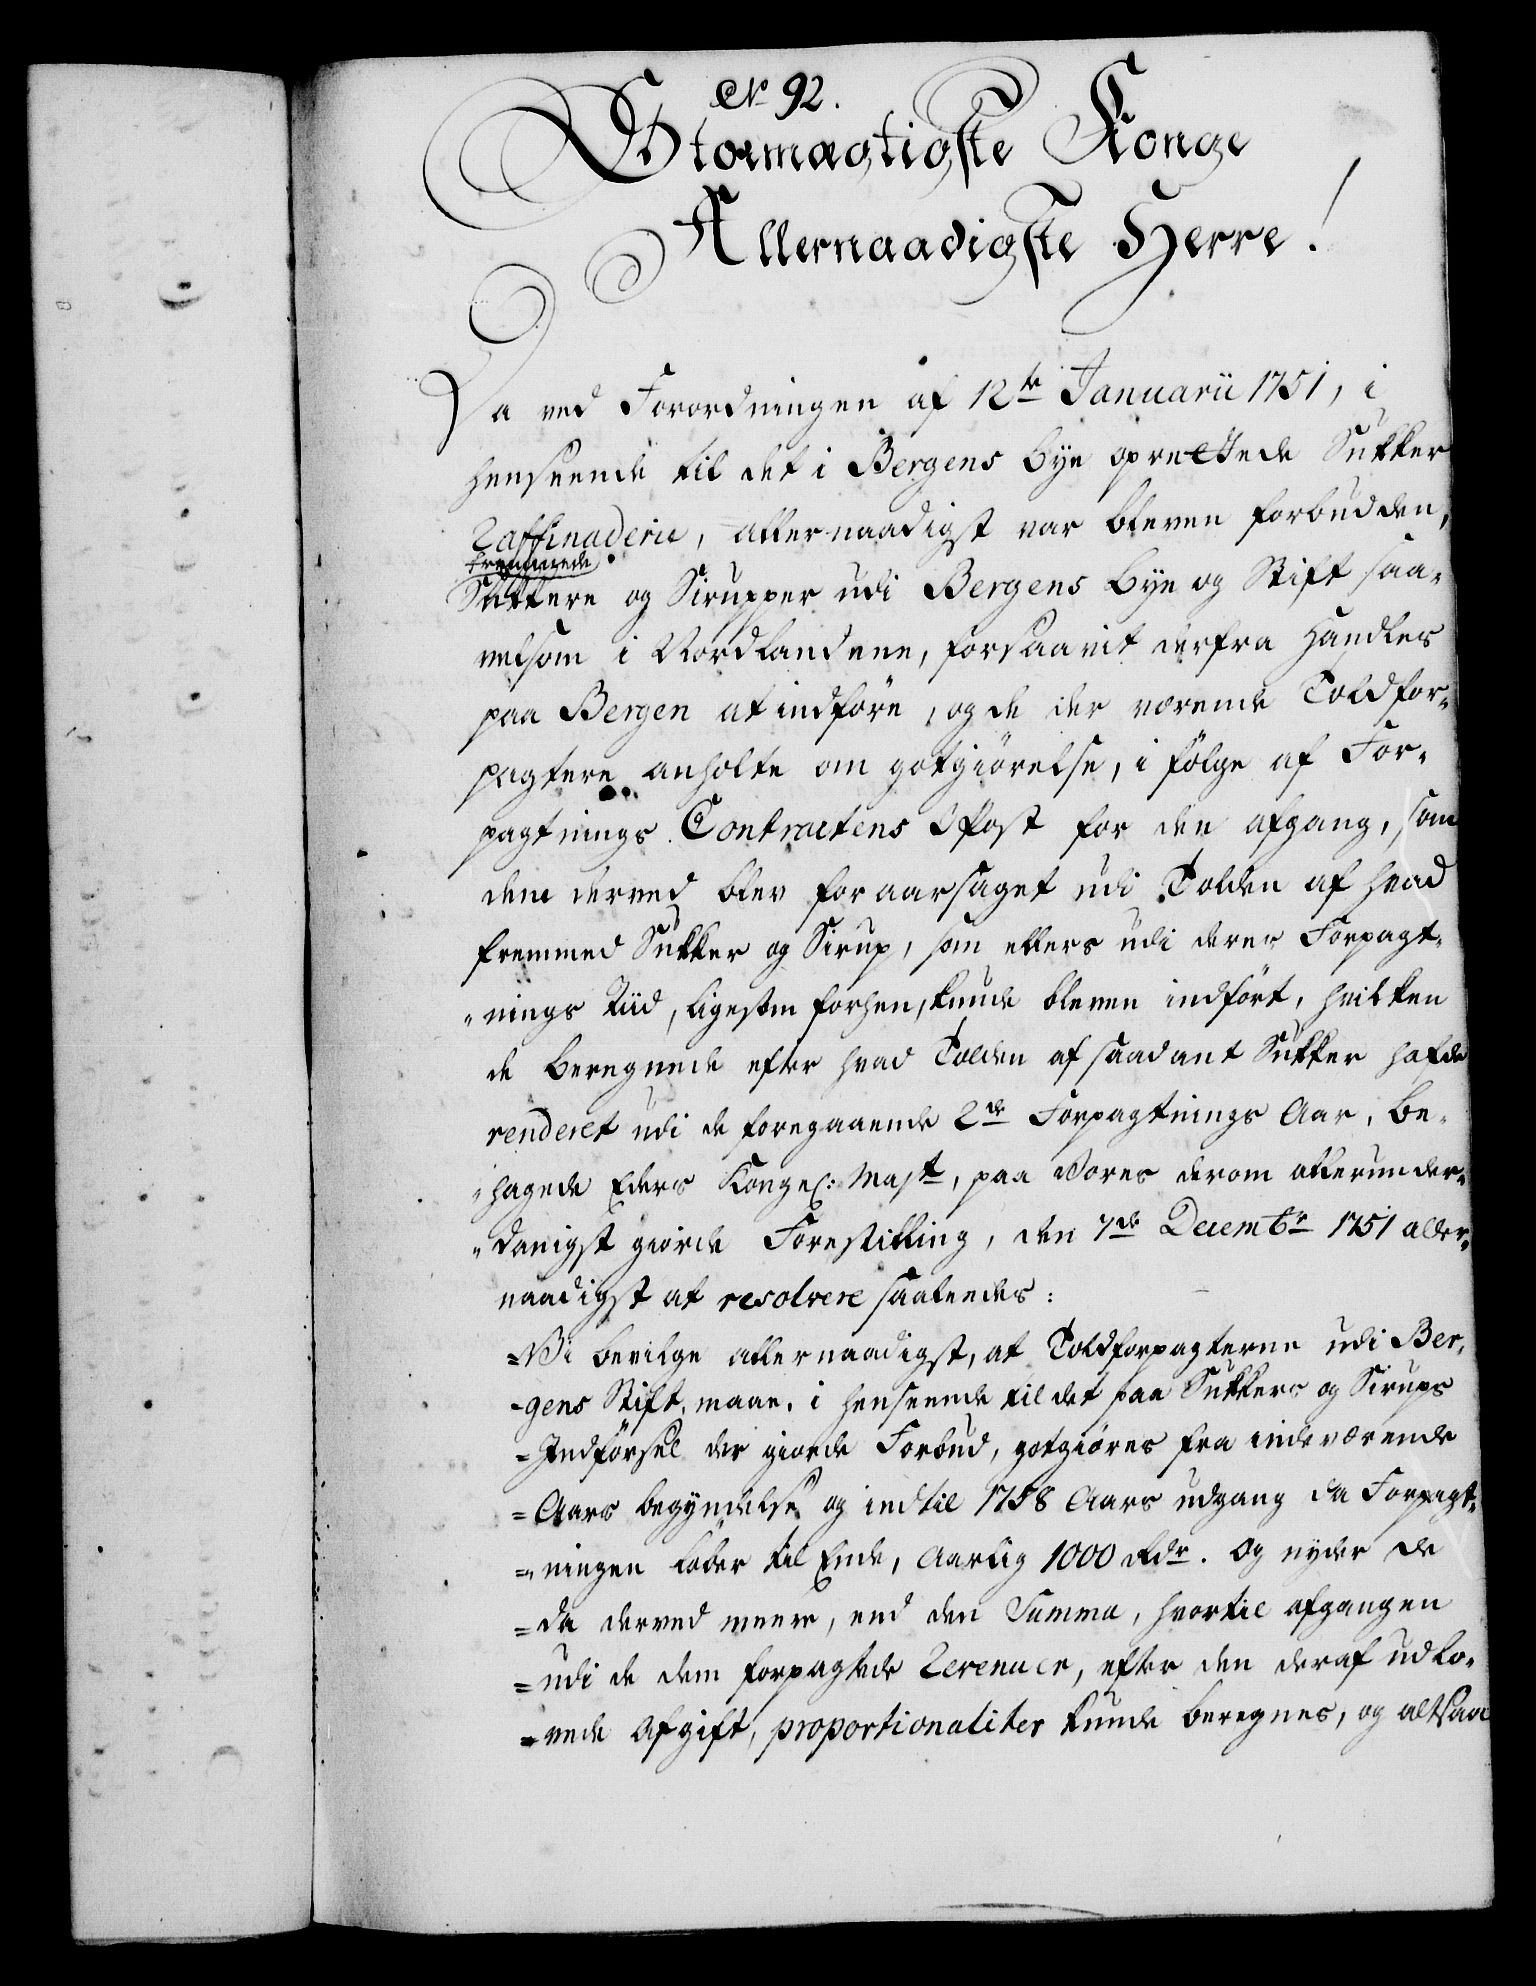 No 92.
Stormægtigste Konge
Allernaadigste Herre!
Da ved Forordningen af 12te Januarii 1751, i
henseende til det i Bergens Bye oprettede Sukker
Raffinaderie, allernaadigst var bleven forbudden,
fremmede
Sukkere og Sirupper udi Bergens Bye og Stift saa-
velsom i Nordlandene, forsaavit derfra handles
paa Bergen at indføre, og de der værende Toldfor-
pagtere anholte om gotgiørelse, i følge af For-
pagtnings Contractens Post for den afgang, som
dem derved blev foraarsaget udi Tolden af hvad
fremmed Sukker og Sirup, som ellers udi deres Forpagt-
nings Tiid, ligesom forhen, kunde bleven indført, hvilken
de beregnede efter hvad Tolden af saadant Sukker hafde
renderet udi de foregaaende 2de Forpagtnings Aar, be-
hagede Eders Kongel: Majt, paa Vores derom allerunder-
danigst giorde Forestilling, den 7de Decembr 1751 aller-
naadigst at resolvere saaledes:
=Vi bevilge allernaadigst, at Toldforpagterne udi Ber-
=gens Stift, maae, i henseende til det paa Sukkers og Sirups
=Indførsel der giorde Forbud, gotgiøres fra indeværende
=Aars begyndelse og indtil 1758 Aars udgang da Forpagt-
=ningen løber til Ende, Aarlig 1000 Rdr. Og nyder de
=da derved meere, end den Summa, hvortil afgangen
=udi de dem forpagtede Revenuer, efter den deraf udlo-
=vede Afgift, proportionaliter kunde beregnes, og altsaa